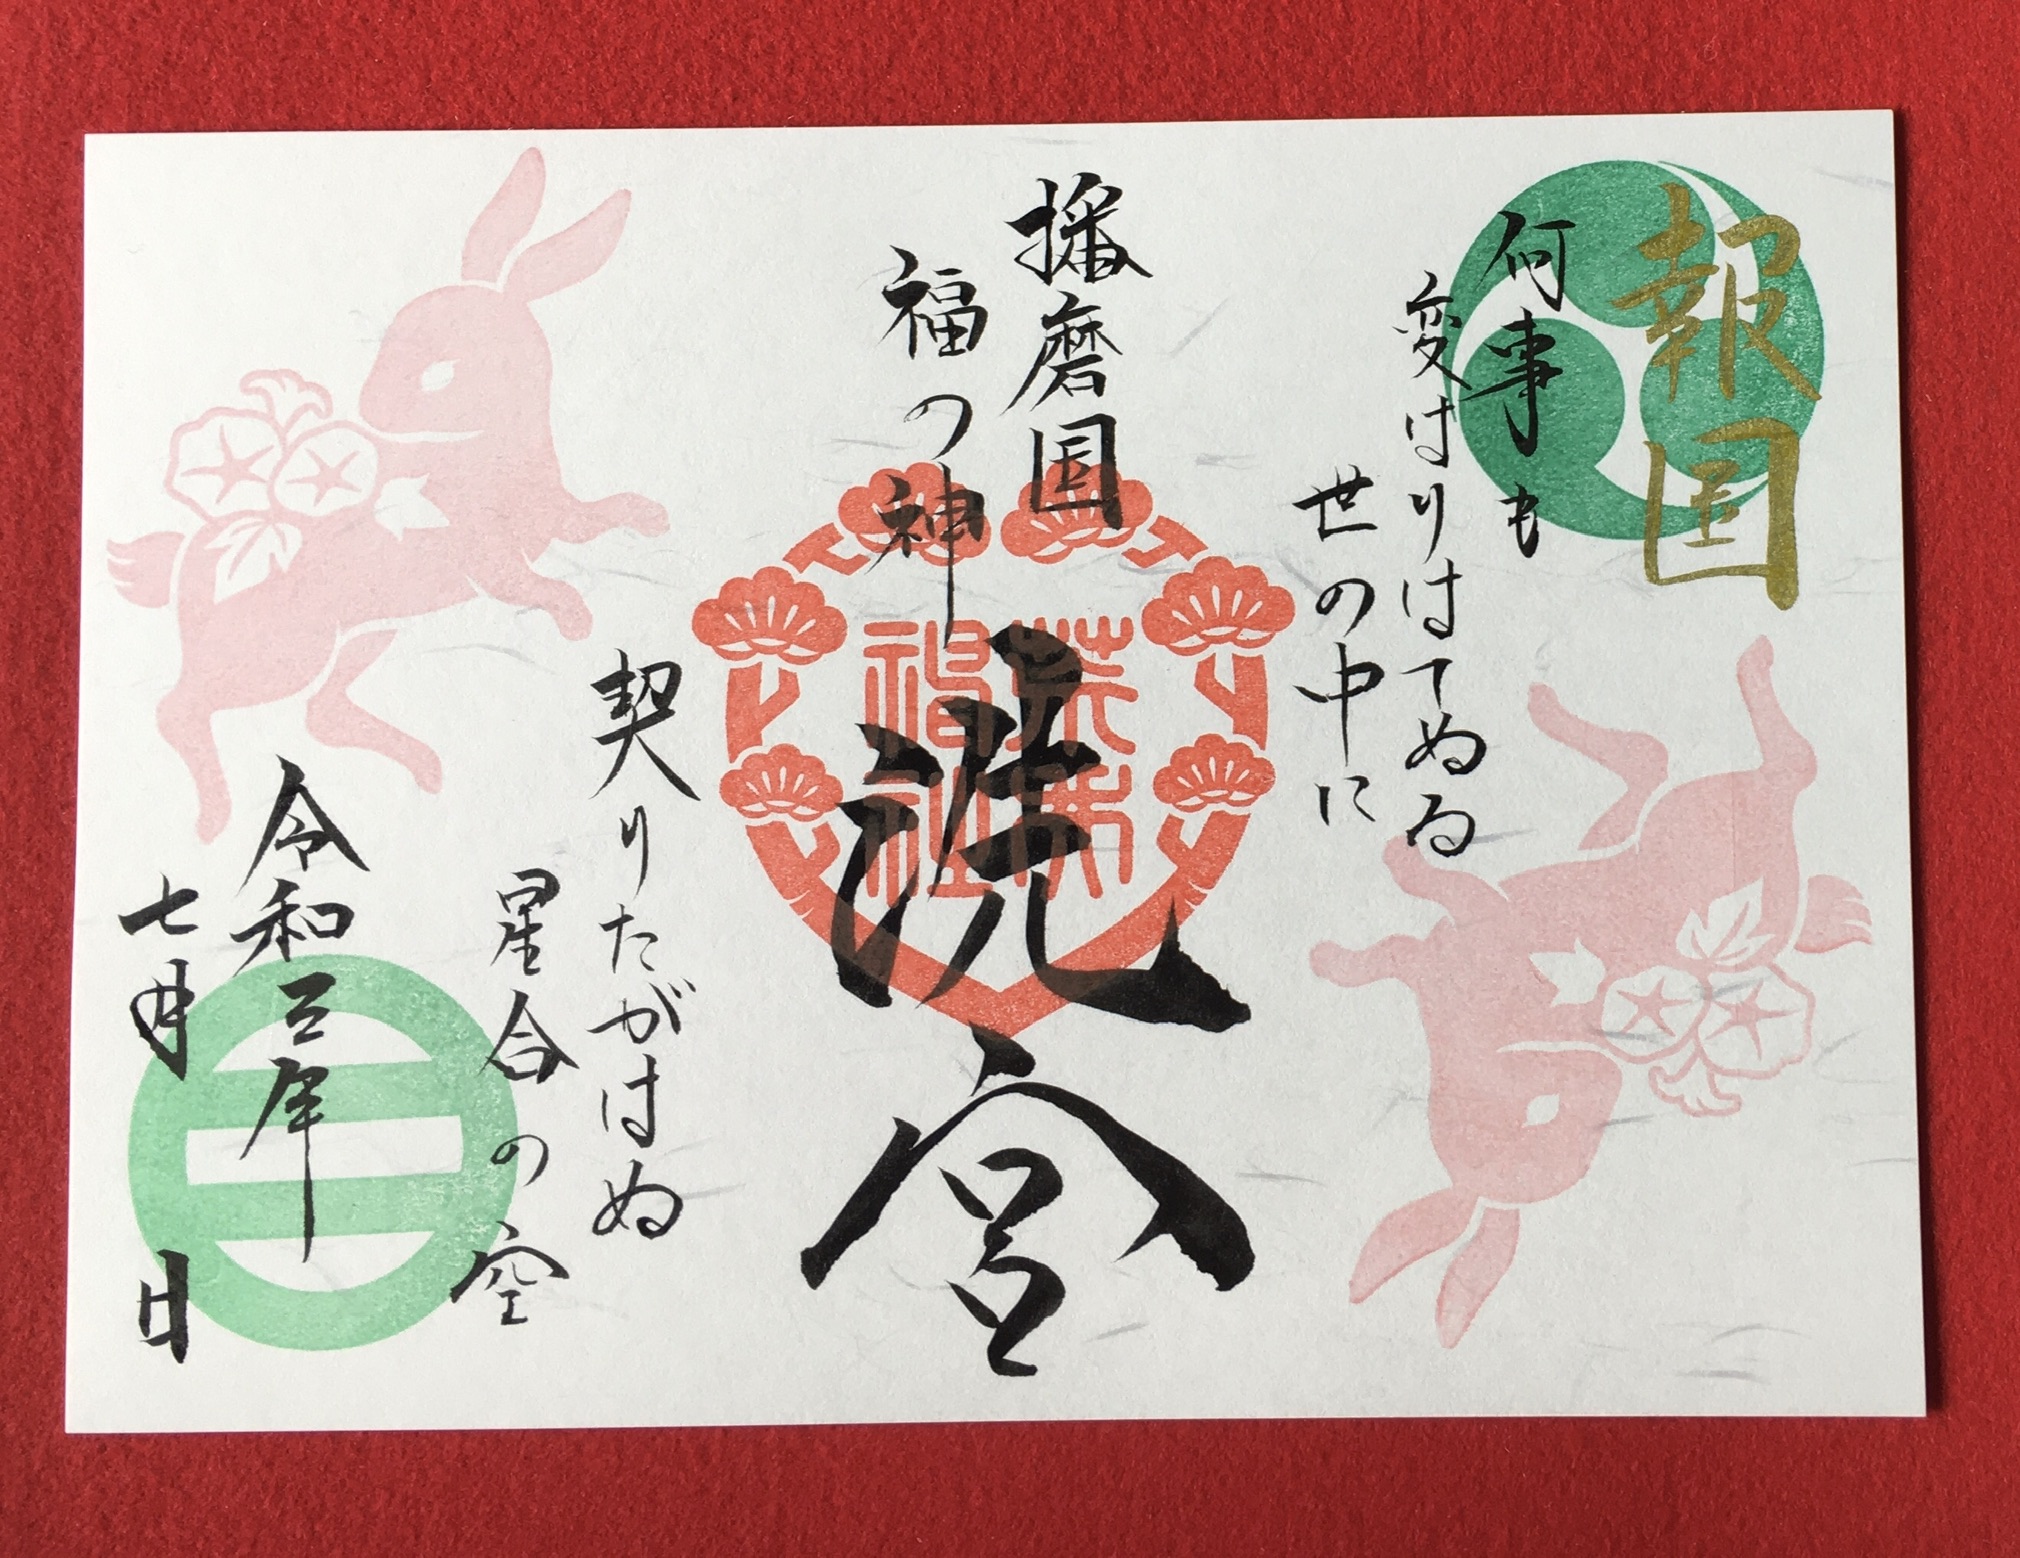 報国
何事も
変はりはてぬる
世の中に
播磨国
福の神
洗宮
荒井
神社
契りたがはぬ
星合の空
令和三年
七月 日